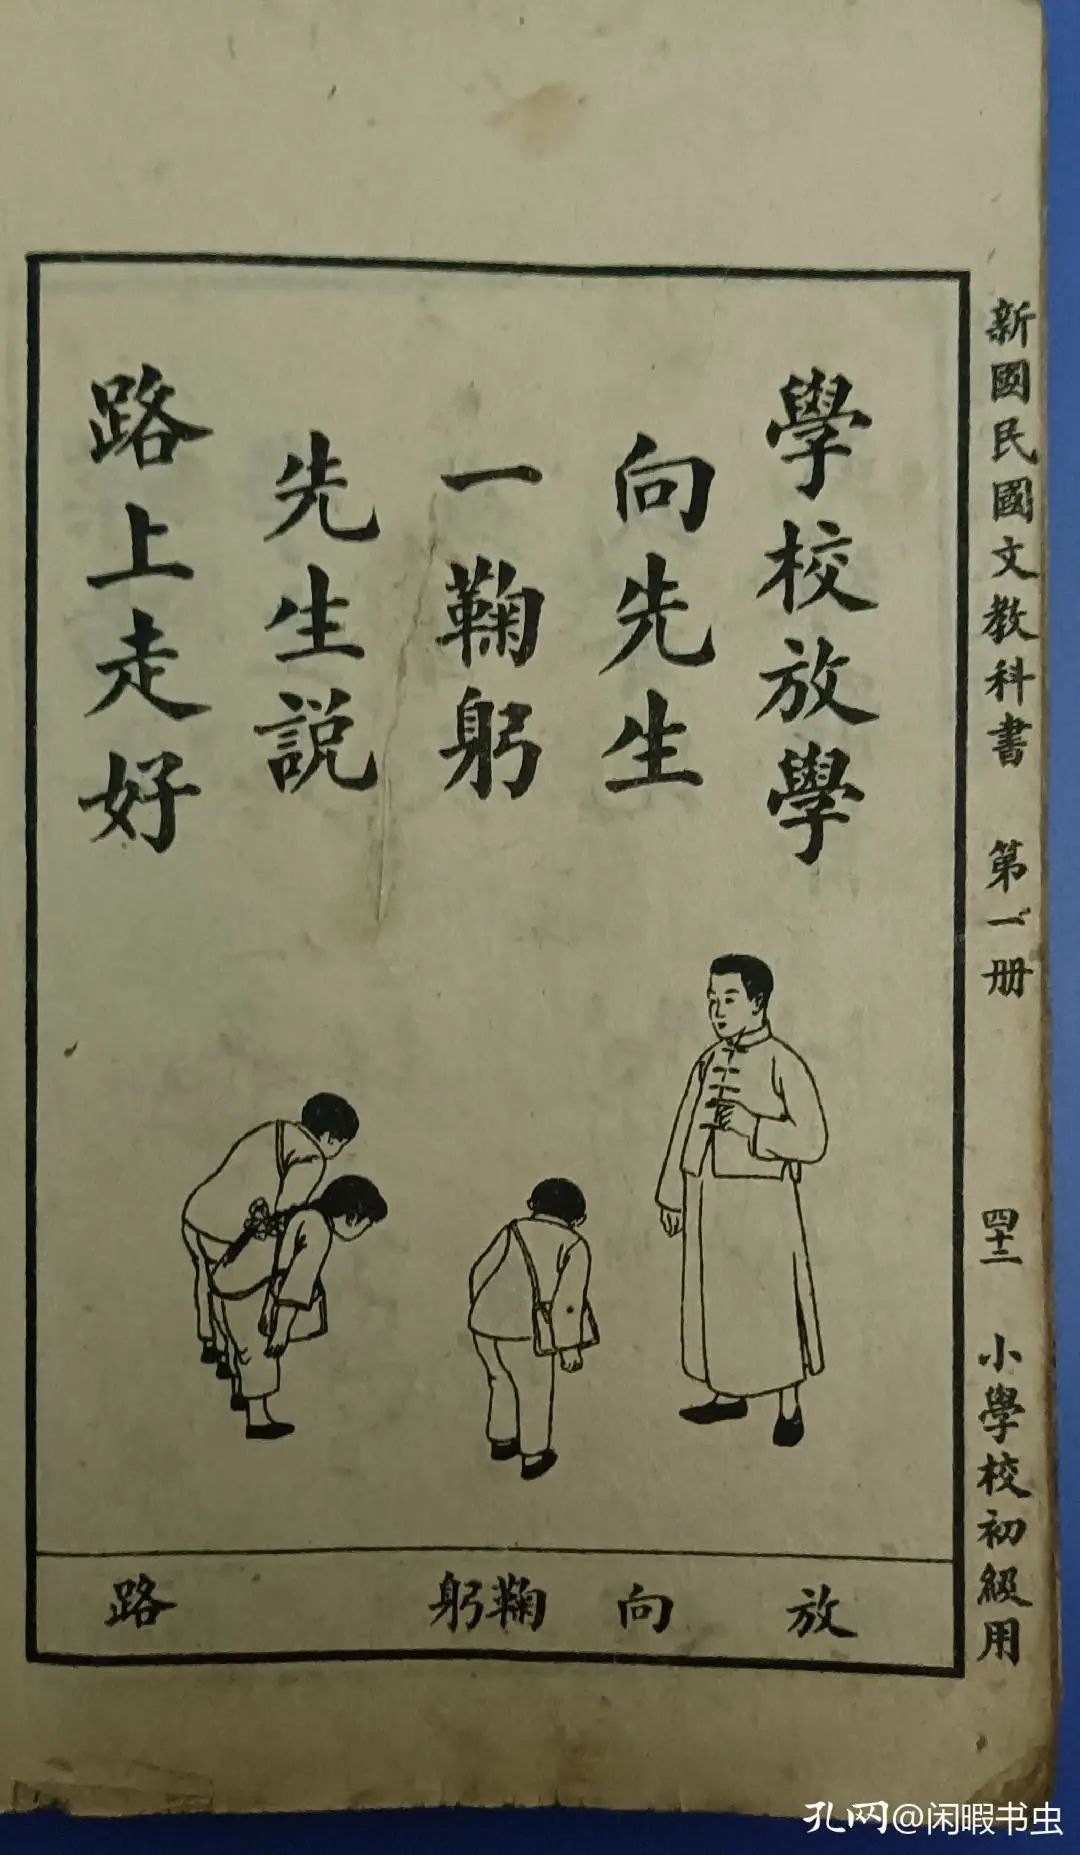 學校放學
向先生
一鞠躬
先生説
路上走好
放
向
鞠躬
路
新國民國文教科書 第一册 四十二 小學校初級用
孔网@闲暇书虫